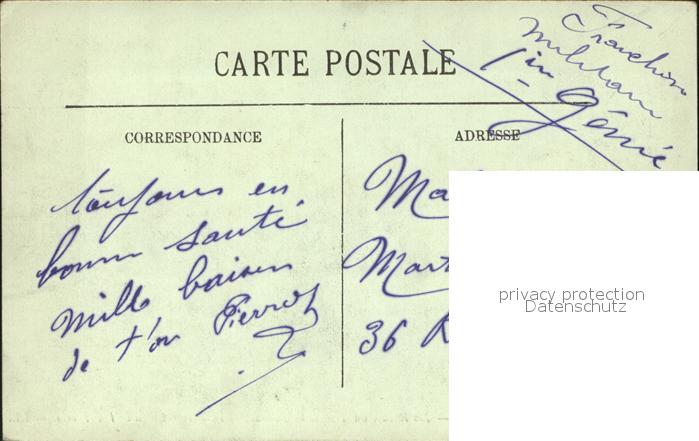 CARTE POSTALE
Franchise
militaire
1er Génie
CORRESPONDANCE
toujours en
bonne santé
mille baisers
de t'on Pierrot
ADRESSE
Ma
Mart
36 R
privacy protection
Datenschutz